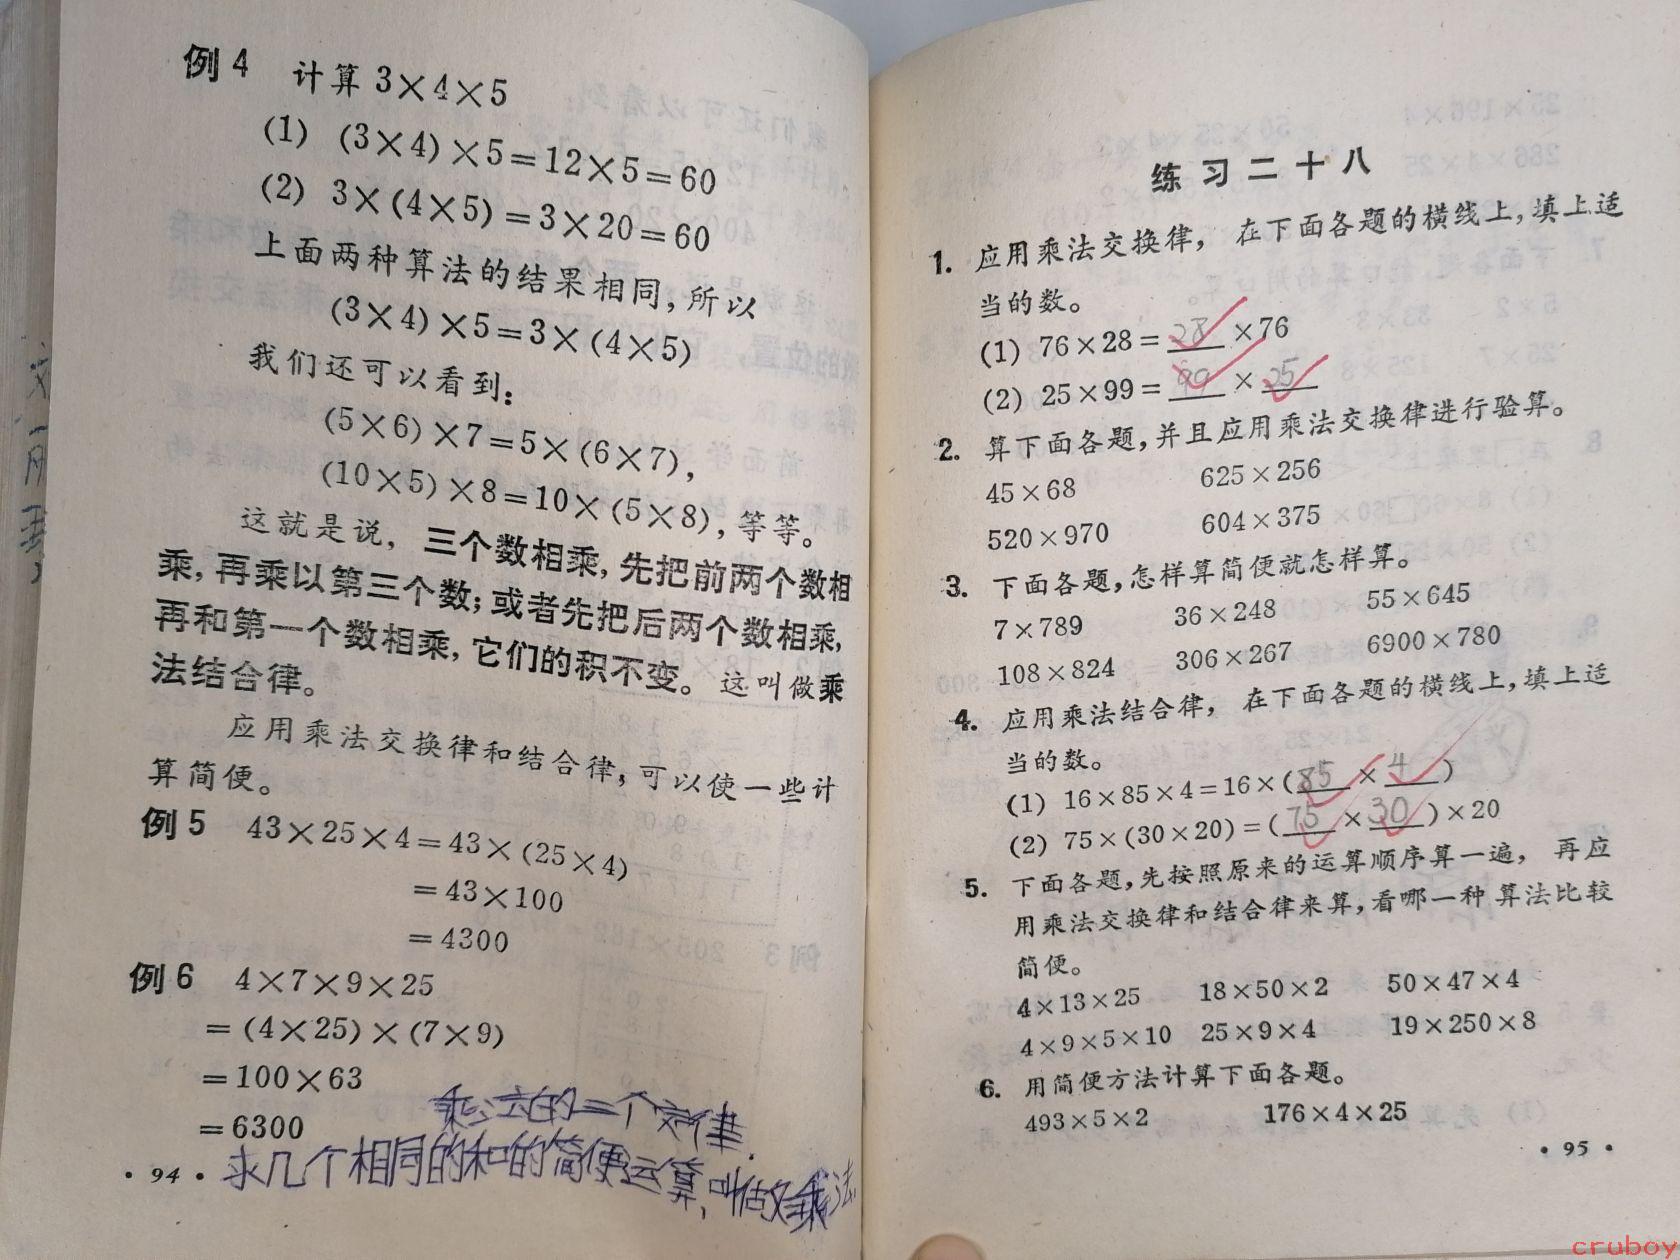 例4 计算 3×4×5
(1) (3×4)×5=12×5=60
(2) 3×(4×5)=3×20=60
上面两种算法的结果相同,所以
(3×4)×5=3×(4×5)
我们还可以看到:
(5×6)×7=5×(6×7),
(10×5)×8=10×(5×8),等等。
这就是说,三个数相乘,先把前两个数相
乘,再乘以第三个数;或者先把后两个数相乘,
再和第一个数相乘,它们的积不变。这叫做乘
法结合律。
应用乘法交换律和结合律,可以使一些计
算简便。
例5 43×25×4=43×(25×4)
=43×100
=4300
例6 4×7×9×25
=(4×25)×(7×9)
=100×63
=6300
乘法的二个定律
求几个相同的和的简便运算,叫做乘法
·94·
练习二十八
1. 应用乘法交换律,在下面各题的横线上,填上适
当的数。
(1) 76×28=28×76
(2) 25×99=99×25
2. 算下面各题,并且应用乘法交换律进行验算。
45×68 625×256
520×970 604×375
3. 下面各题,怎样算简便就怎样算。
7×789 36×248 55×645
108×824 306×267 6900×780
4. 应用乘法结合律,在下面各题的横线上,填上适
当的数。
(1) 16×85×4=16×(85×4)
(2) 75×(30×20)=(75×30)×20
5. 下面各题,先按照原来的运算顺序算一遍,再应
用乘法交换律和结合律来算,看哪一种算法比较
简便。
4×13×25 18×50×2 50×47×4
4×9×5×10 25×9×4 19×250×8
6. 用简便方法计算下面各题。
493×5×2 176×4×25
·95·
cruboy